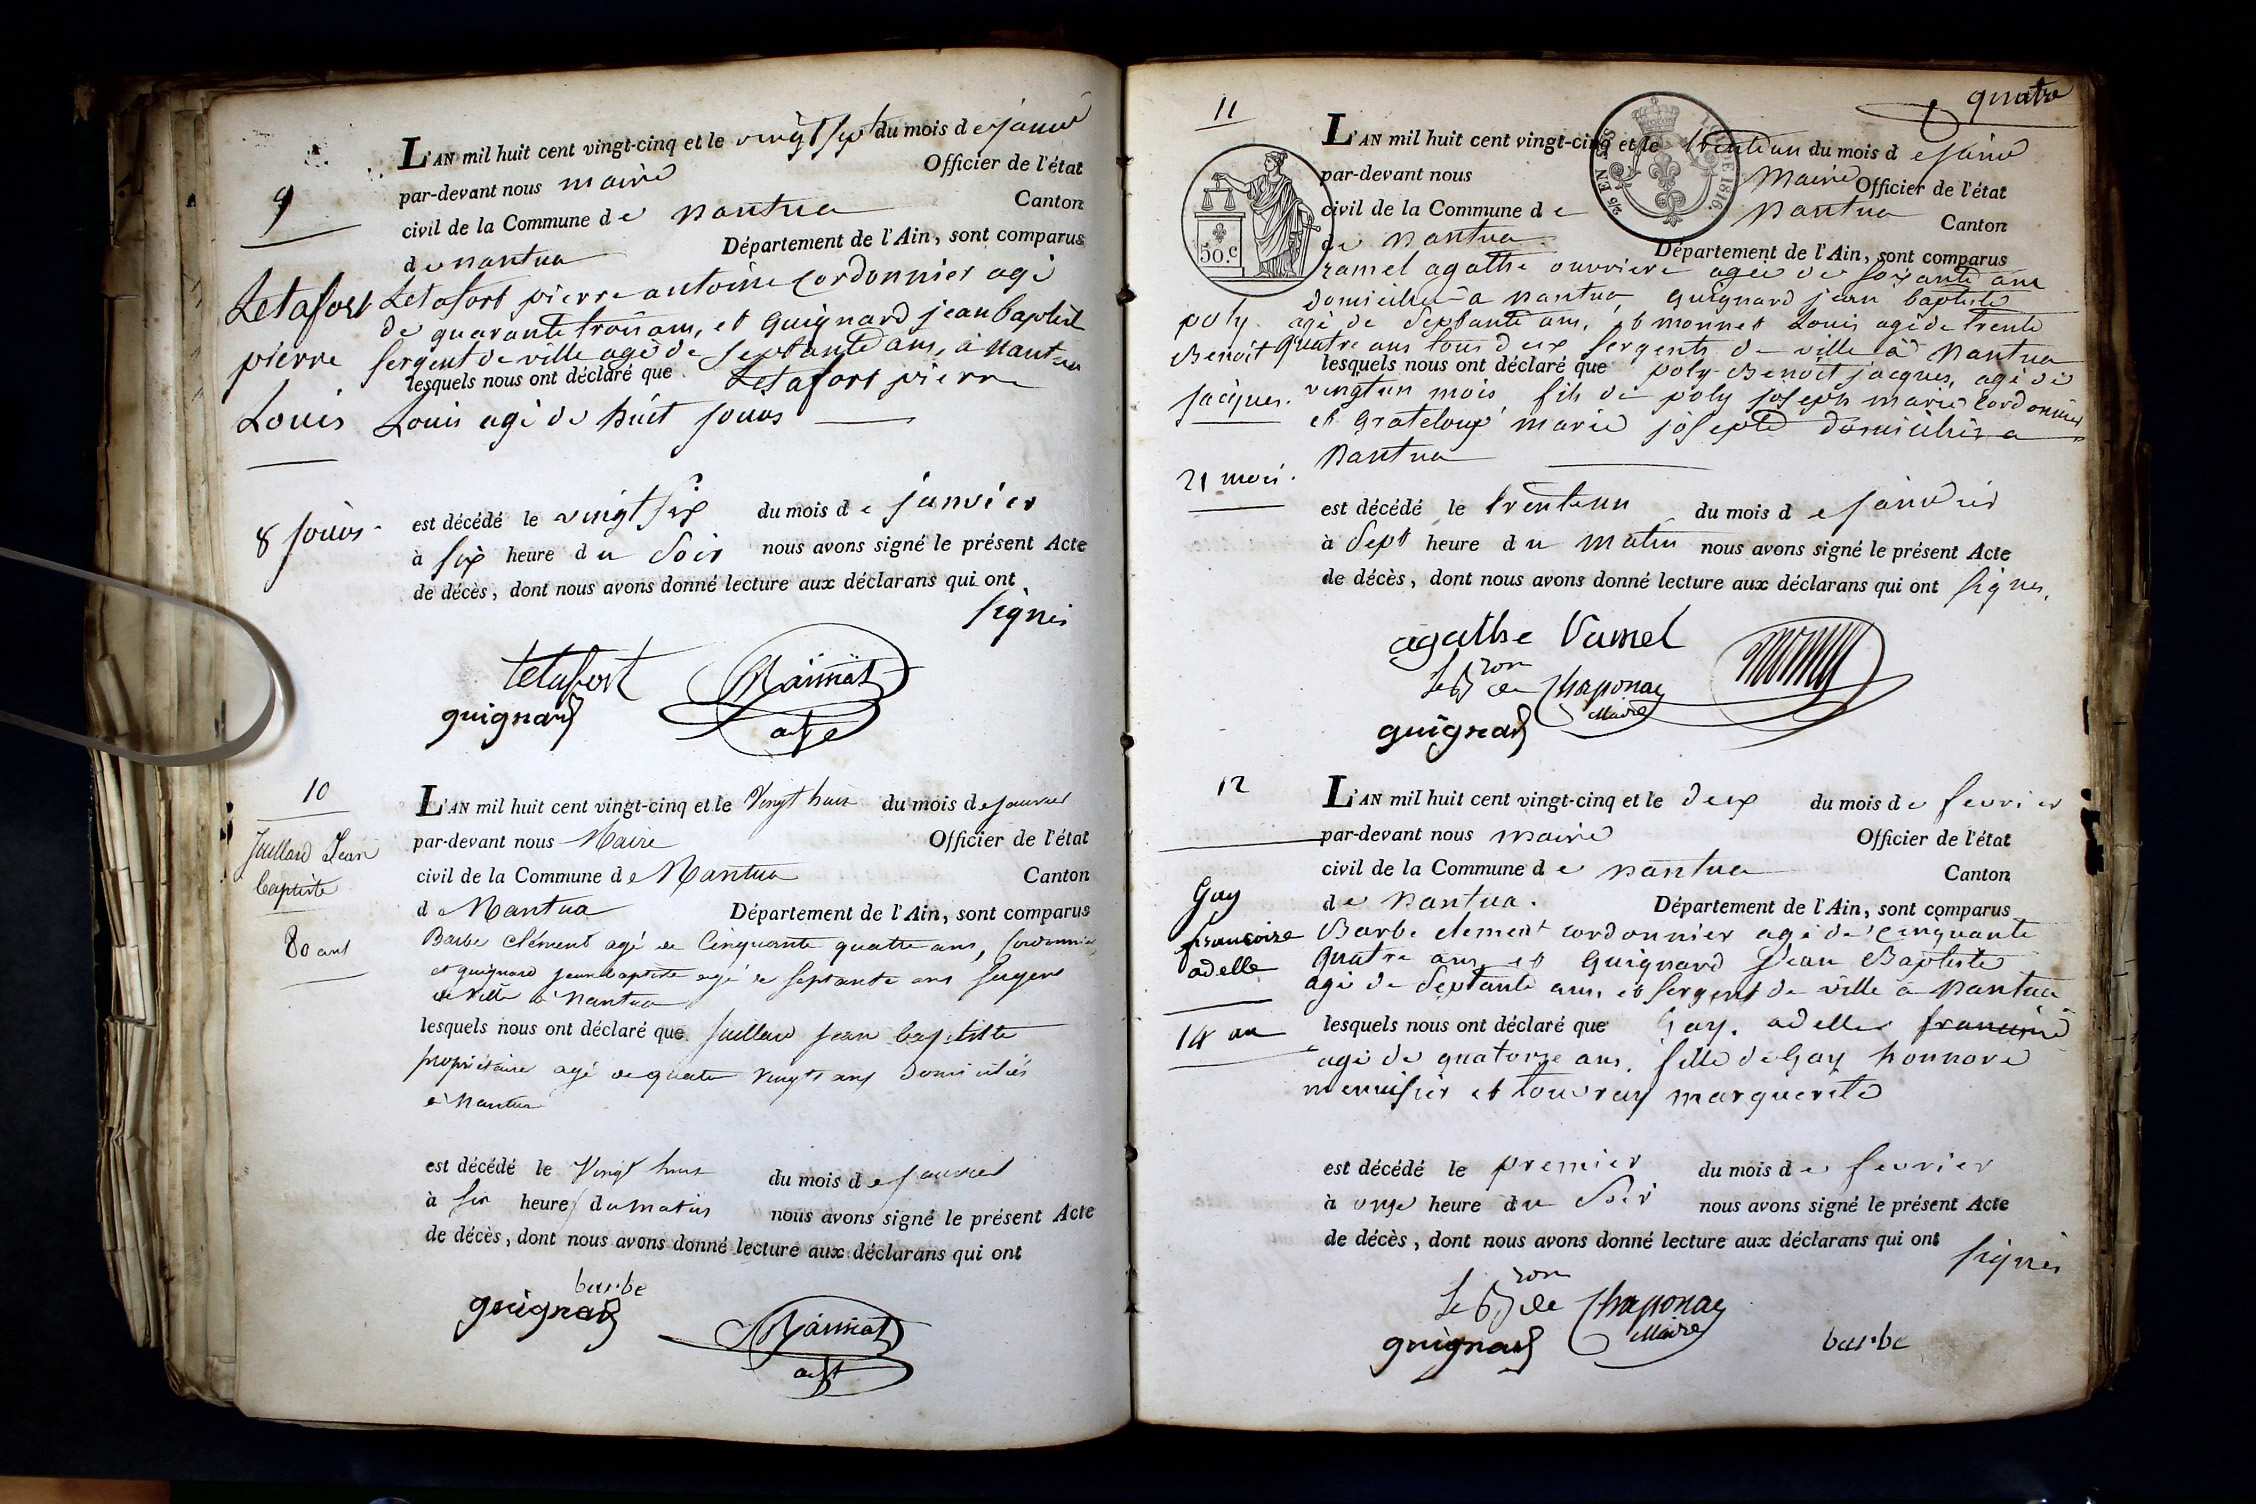 9
L'AN mil huit cent vingt-cinq et le vingt sept du mois de janvié
par-devant nous maire Officier de l'état
civil de la Commune de nantua Canton
de nantua Département de l'Ain, sont comparus
Letafort pierre antoine Cordonnier agé
de quarante trois ans, et Guignard jean Baptist
sergent de ville agé de septante ans, à Nantua
lesquels nous ont déclaré que Letafort pierre
Louis agé de huit jours
Letafort
pierre
Louis
8 jours
est décédé le vingt six du mois de janvier
à six heure du Soir nous avons signé le présent Acte
de décès, dont nous avons donné lecture aux déclarans qui ont
signés
letafort
guignard
adjt
10
Juillard Jean
Baptiste
80 ans
L'AN mil huit cent vingt-cinq et le Vingt huit du mois de janvier
par-devant nous Maire Officier de l'état
civil de la Commune de Nantua Canton
de Nantua Département de l'Ain, sont comparus
Barbe Clément agé de Cinquante quatre ans, Cordonnier
et guignard jean baptiste agé de septante ans sergent
de ville à Nantua
lesquels nous ont déclaré que Juillard jean baptiste
propriétaire agé de quatre vingts ans domiciliés
à Nantua
est décédé le Vingt huit du mois de janvier
à six heure du matin nous avons signé le présent Acte
de décès, dont nous avons donné lecture aux déclarans qui ont
barbe
guignard
adjt
quatre
11
L'AN mil huit cent vingt-cinq et le trente un du mois de janvié
par-devant nous Maire Officier de l'état
civil de la Commune de Nantua Canton
de Nantua Département de l'Ain, sont comparus
50.C
EN SUS
LOI DE 1816.
ramel agathe ouvriere agée de soixante ans
domiciliée à nantua, Guignard jean baptiste
agé de septante ans, et monnet Louis agé de trente
quatre ans tous deux sergents de ville à Nantua
lesquels nous ont déclaré que poly Benoit jacques, agé de
vingt un mois fils de poly joseph marie Cordonnier
et Grateloup marie josepte domiciliés a
Nantua
poly
Benoit
jacques.
21 mois.
est décédé le trente un du mois de janvier
à Sept heure du matin nous avons signé le présent Acte
de décès, dont nous avons donné lecture aux déclarans qui ont signés.
agathe Ramel
le Bron de Chaponay
Maire
guignard
12
L'AN mil huit cent vingt-cinq et le deux du mois de fevrier
par-devant nous maire Officier de l'état
civil de la Commune de nantua Canton
de Nantua. Département de l'Ain, sont comparus
Barbe clement cordonnier agé de cinquante
quatre ans et Guignard Jean Baptiste
agé de septante ans, et sergent de ville à Nantua
lesquels nous ont déclaré que Gay. adelle francoise
agé de quatorze ans, fille de Gay honnoré
menuisier et touvray marguerite
Gay
francoise
adelle
14 an
est décédé le premier du mois de fevrier
à onze heure du Soir nous avons signé le présent Acte
de décès, dont nous avons donné lecture aux déclarans qui ont
signés
le Bron de Chaponay
Maire
guignard
barbe